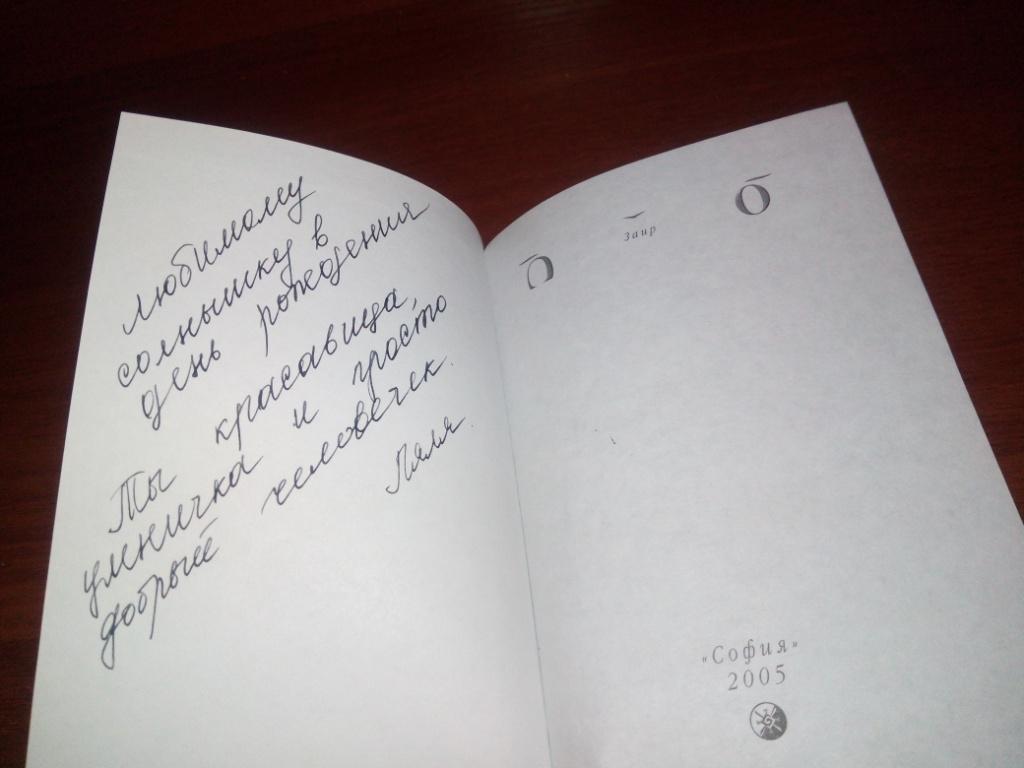 любимому
солнышку в
день рождения
Ты красавица,
умничка и просто
добрый человечек.
Ляля.
заир
"София"
2005